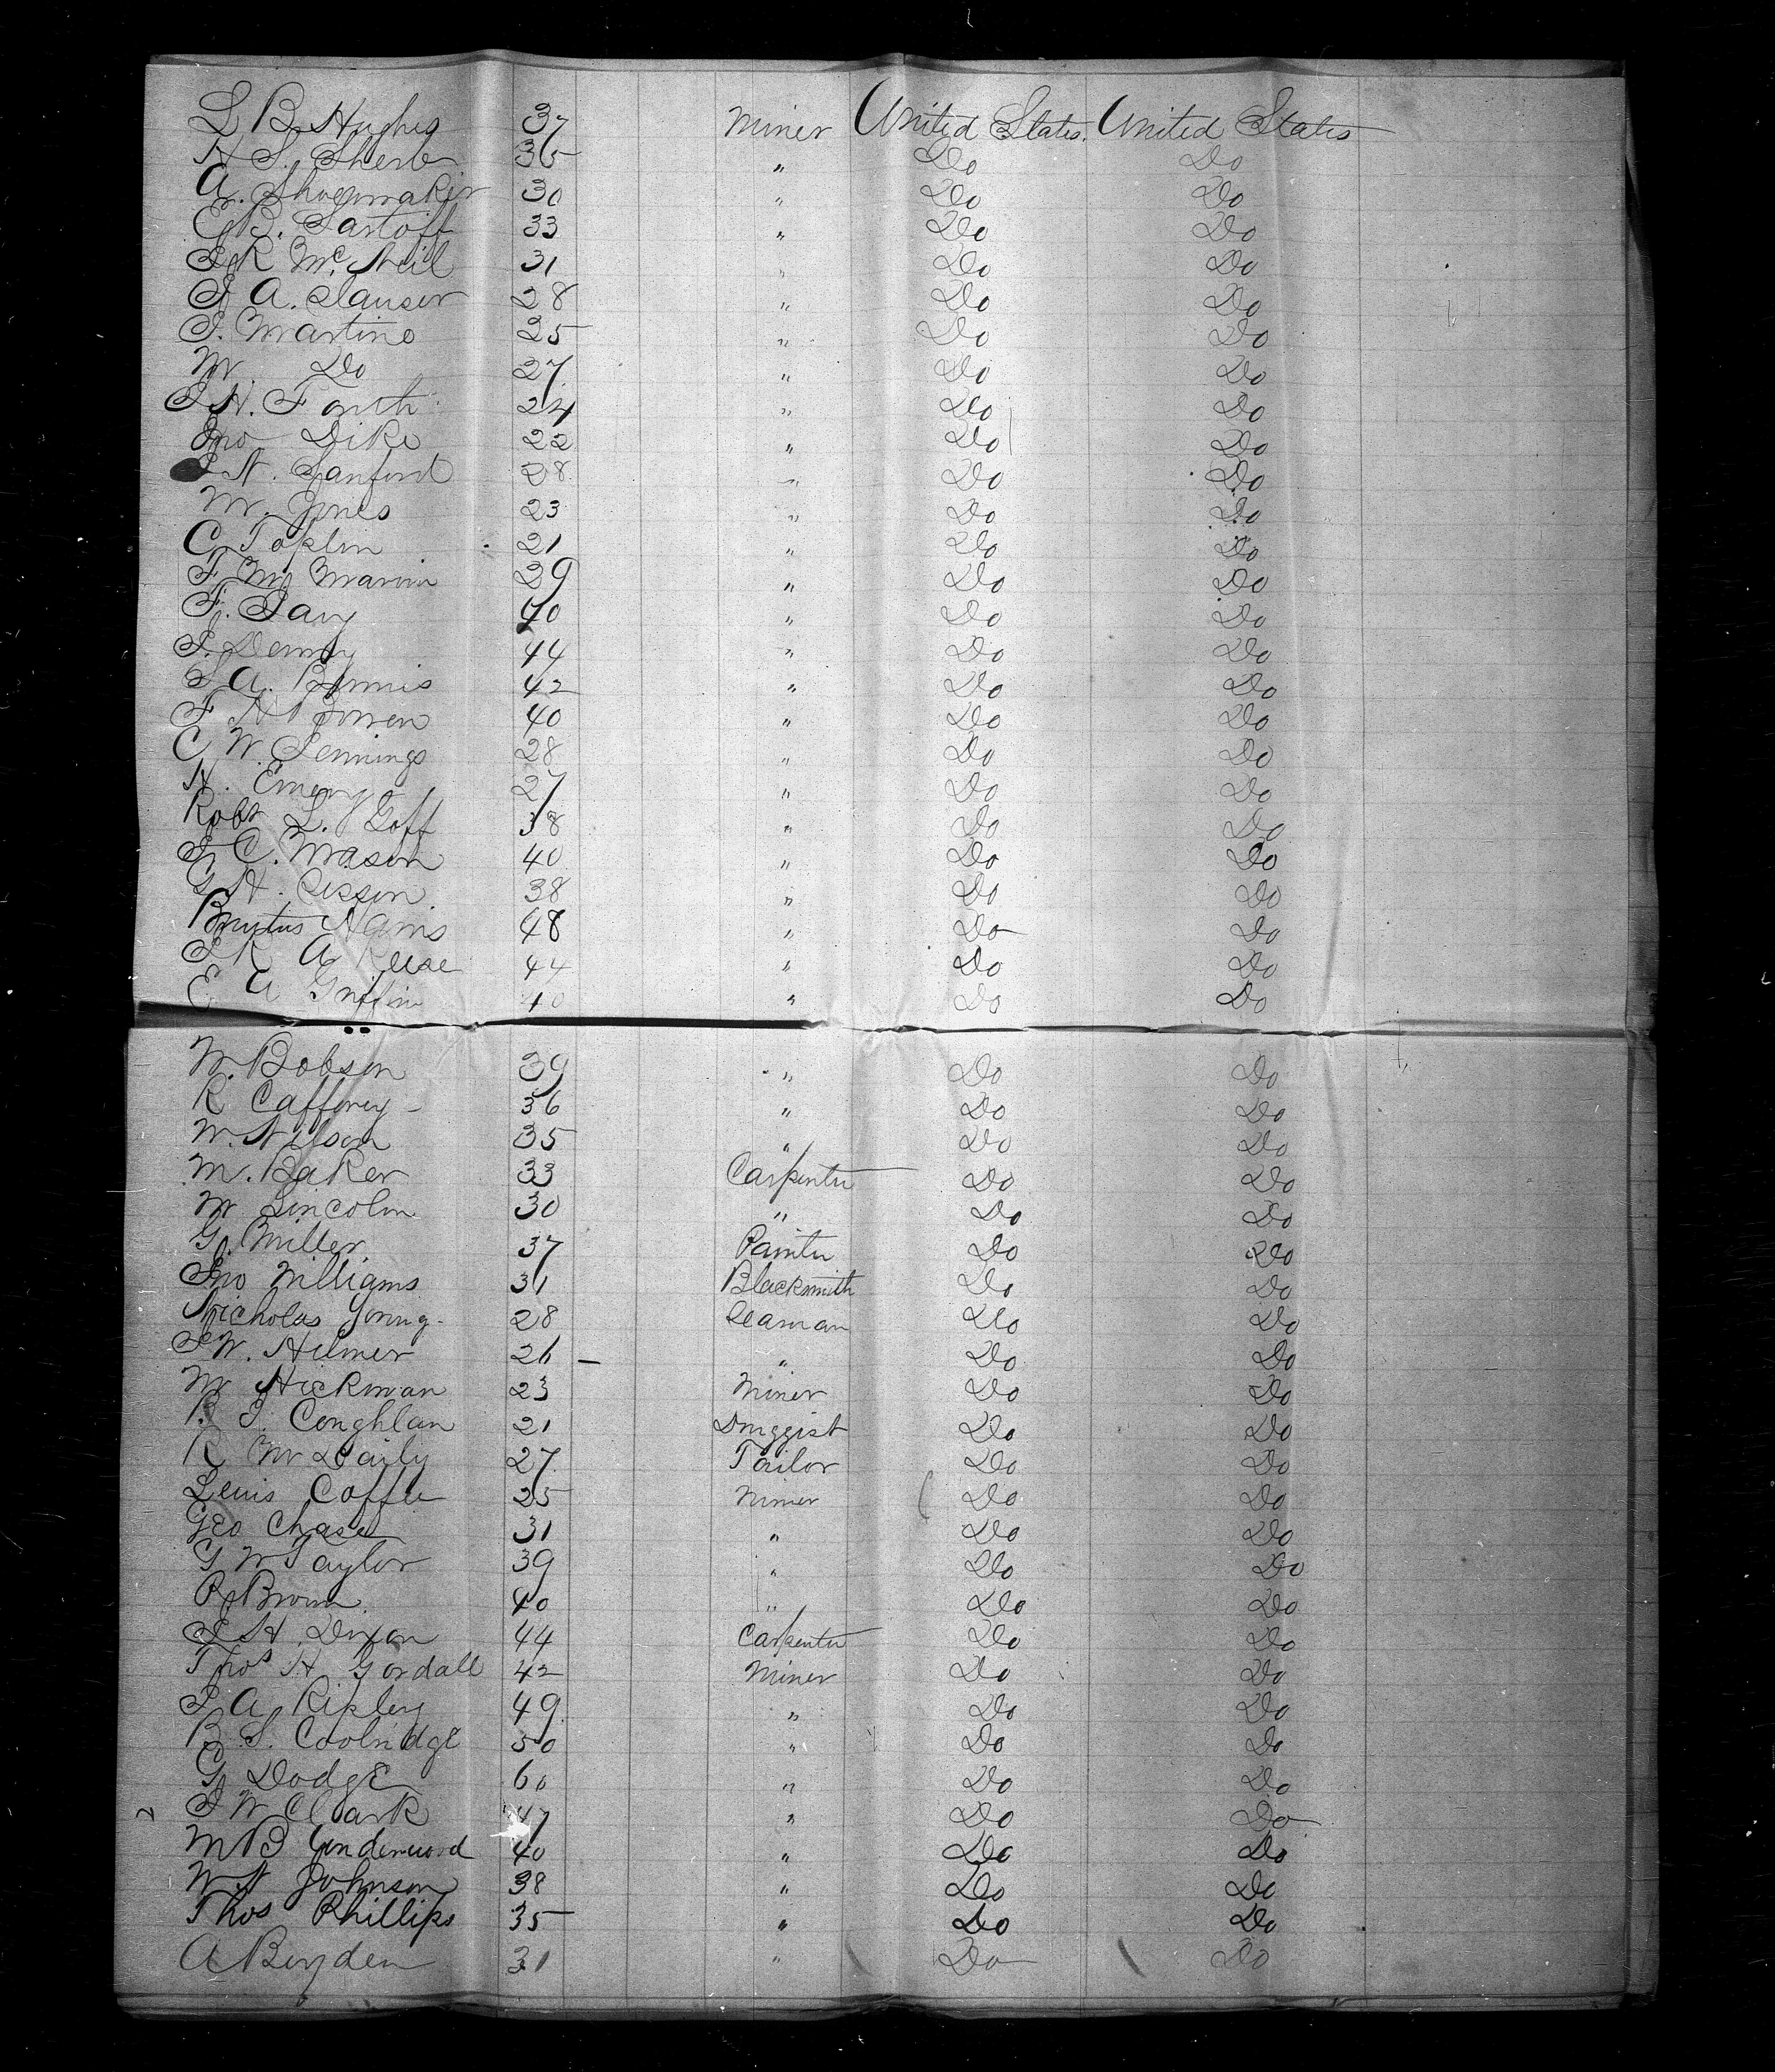 L B Hughes 37 Miner United States. United States
H S. Sherb 35 " Do Do
A. Shoemaker 30 " Do Do
E B. Sartoff 33 " Do Do
J R Mc Neil 31 " Do Do
J A. Clauser 28 " Do Do
J. Martino 25 " Do Do
M Do 27 " Do Do
J H. Forth 24 " Do Do
Jno Dike 22 " Do Do
J N. Sanford 28 " Do Do
M. Jones 23 " Do Do
C Toplin 21 " Do Do
F M Marvin 29 " Do Do
F. Davy 40 " Do Do
J. Denny 44 " Do Do
J A. Bemis 42 " Do Do
F H Bowen 40 " Do Do
C W. Jennings 28 " Do Do
H. Emery 27 " Do Do
Robt L. Goff 38 " Do Do
J C. Mason 40 " Do Do
G H. Sisson 38 " Do Do
Brutus Harris 48 " Do Do
J R A Reese 44 " Do Do
E A Griffin 40 " Do Do
W. Bobson 39 " Do Do
R Cafferey 36 " Do Do
W. Nilson 35 " Do Do
M. Baker 33 Carpenter Do Do
M Lincoln 30 " Do Do
G. Miller 37 Painter Do Do
Jno Williams 31 Blacksmith Do Do
Nicholas Young 28 Seaman Do Do
J W. Hilmer 26 " Do Do
M Hickman 23 Miner Do Do
B. J. Conghlan 21 Druggist Do Do
R M Daily 27 Tailor Do Do
Lewis Coffee 25 Miner Do Do
Geo Chase 31 " Do Do
G W Taylor 39 " Do Do
R Brown 40 " Do Do
J H. Dixon 44 Carpenter Do Do
Thos H Gordall 42 Miner Do Do
J A Ripley 49 " Do Do
B S. Coolridge 50 " Do Do
G Dodge 60 " Do Do
J W Clark 47 " Do Do
M B Underwood 40 " Do Do
W H Johnson 38 " Do Do
Thos Phillips 35 " Do Do
A Boyden 31 " Do Do